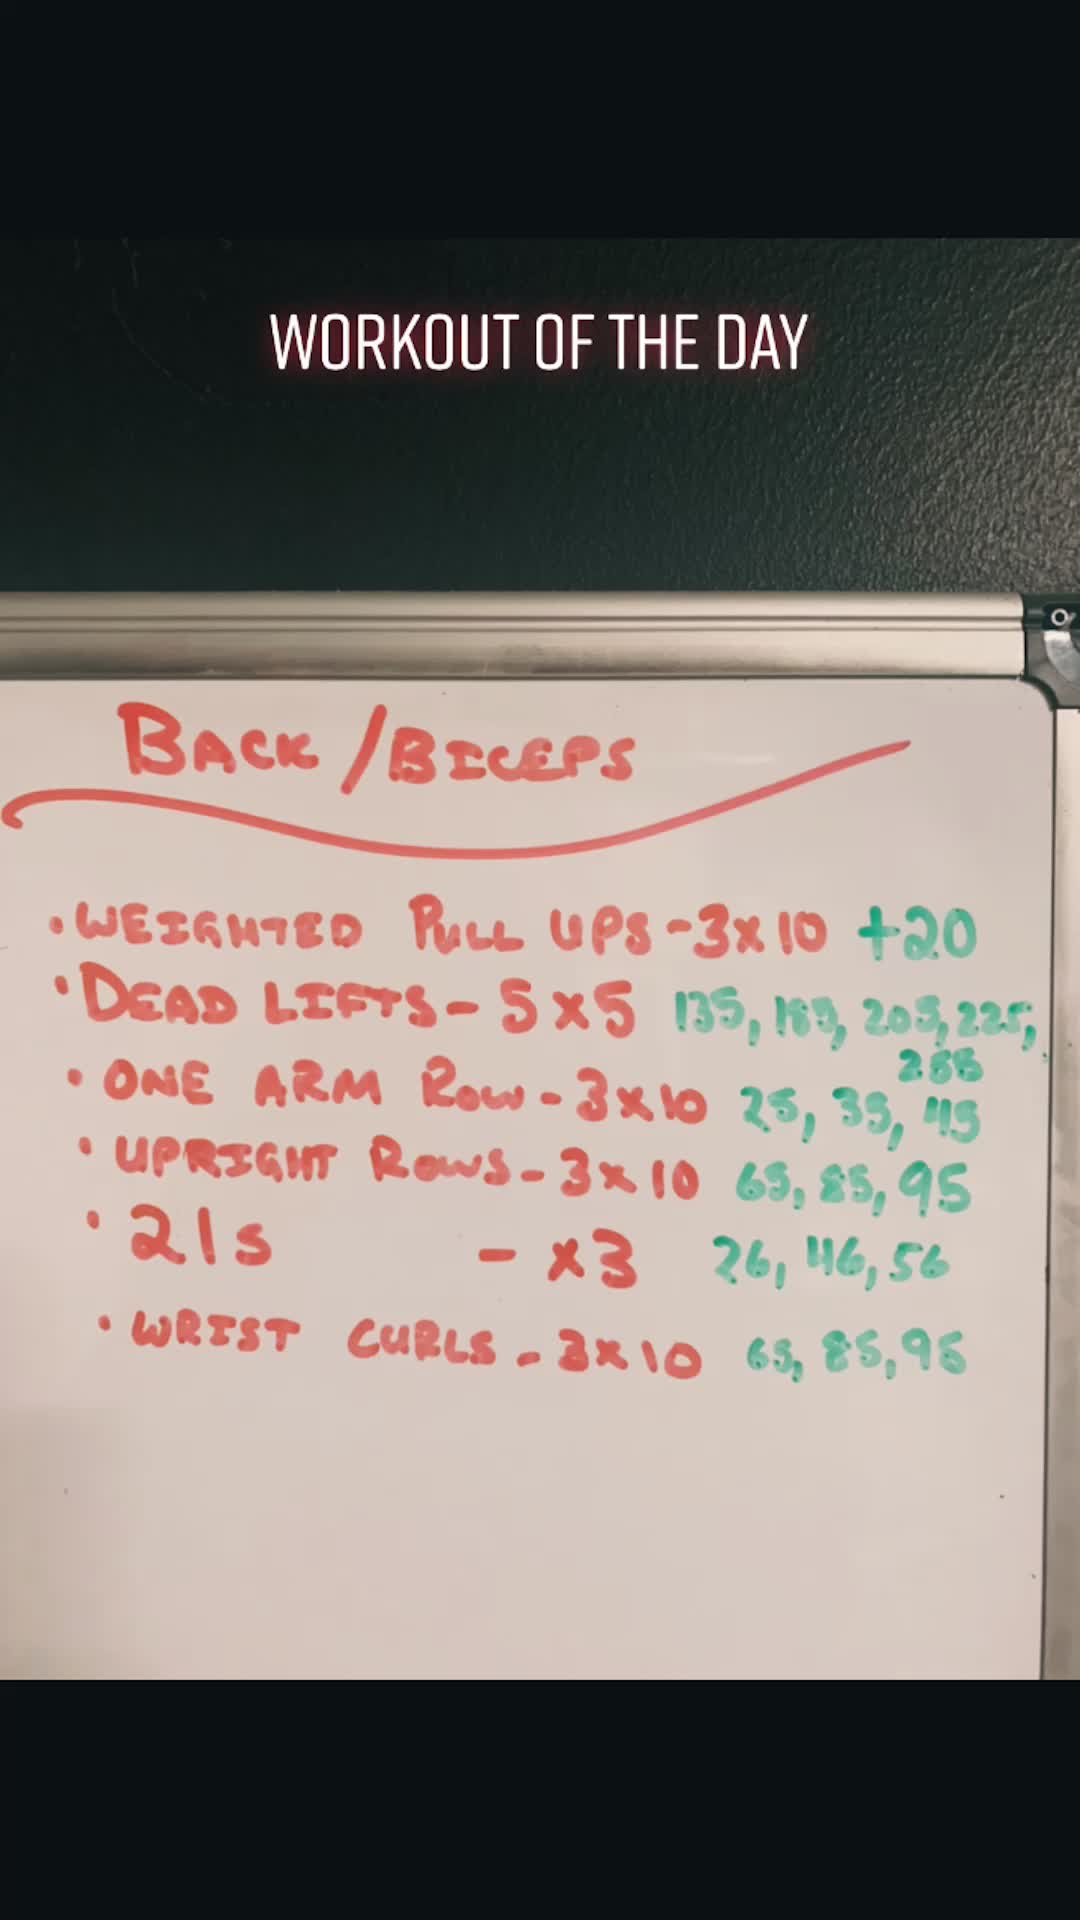 WORKOUT OF THE DAY
BACK/BICEPS
• WEIGHTED PULL UPS - 3 x 10 +20
• DEAD LIFTS - 5 x 5 135, 185, 205, 225,
255
• ONE ARM ROW - 3 x 10 25, 35, 45
• UPRIGHT ROWS - 3 x 10 65, 85, 95
• 21s - x3 26, 46, 56
• WRIST CURLS - 3 x 10 65, 85, 95